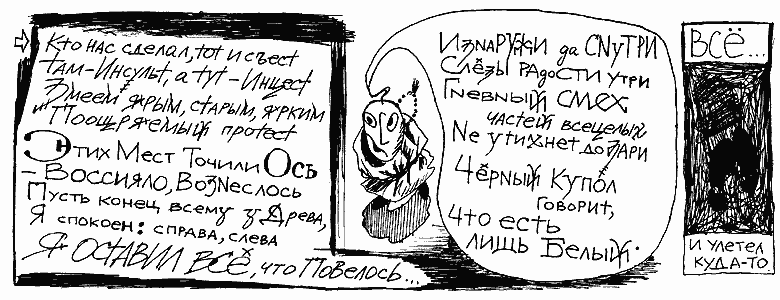 Кто нас сделал, тот и съест
Там – Инсульт, а тут – Инцест
Змеем ярым, старым, ярким
Поощряемый протест
Этих Мест Точили Ось
– Воссияло, Вознеслось
Пусть конец всему у Древа,
Я спокоен: справа, слева
Я оставил всё, что повелось...
Изнаружи да Снутри
Слёзы Радости утри
Гневный смех
частей всецелых
Не утихнет до зари
Чёрный купол
говорит,
что есть
лишь Белый.
ВСЁ...
И УЛЕТЕЛ
КУДА-ТО